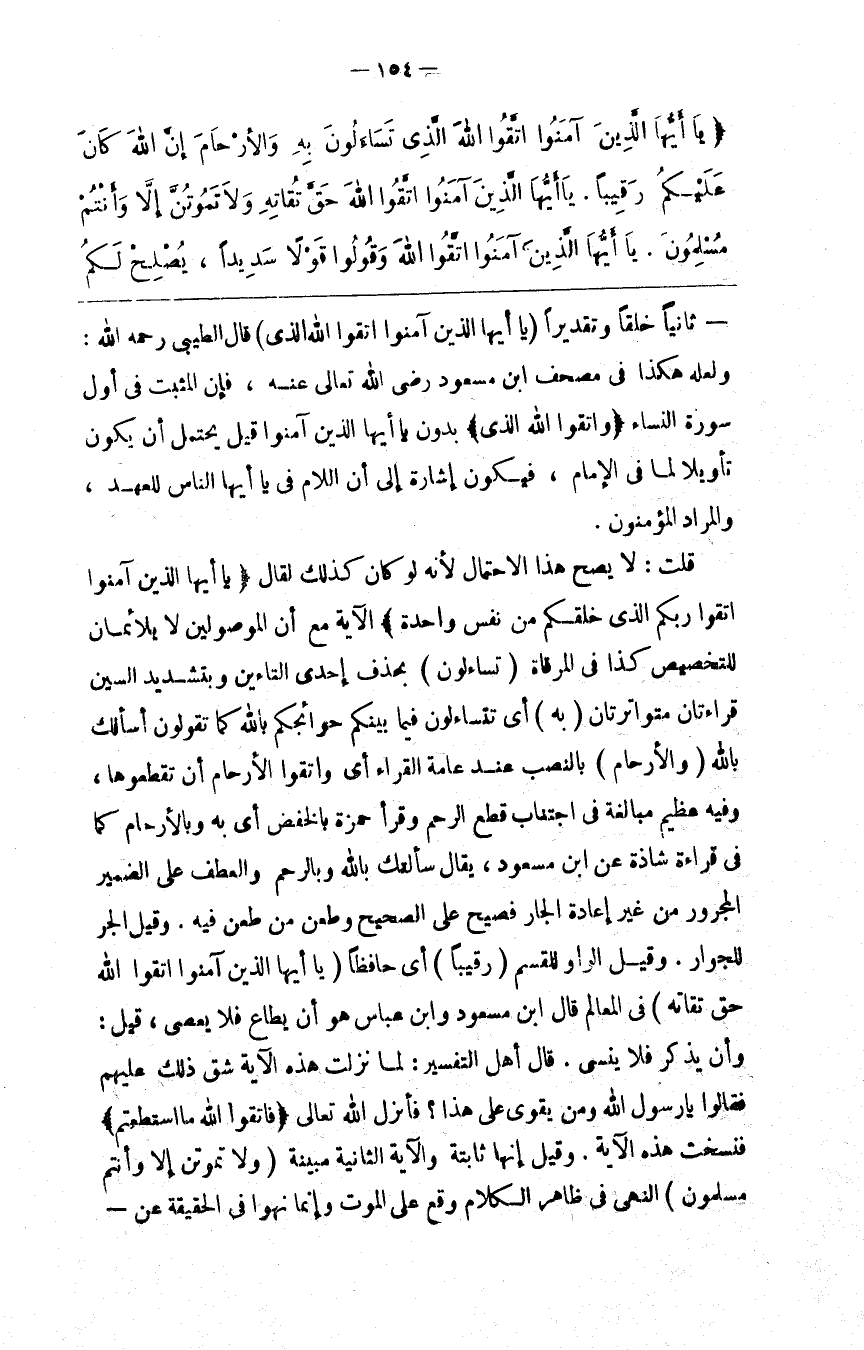 — ١٥٤ —
﴿ يَا أَيُّهَا الَّذِينَ آمَنُوا اتَّقُوا اللهَ الَّذِى تَسَاءلُونَ بِهِ وَالأرْحَامَ إِنَّ اللهَ كَانَ
عَلَيْكمُ رَقِيباً . يَاأَيُّهَا الَّذِينَ آمَنُوا اتَّقُوا اللهَ حَقَّ تُقاتِهِ وَلاَتَمُوتُنَّ إِلَّا وَأَنْتُمْ
مُسْلِمُونَ . يَا أَيُّهَا الَّذِينَ آمَنُوا اتَّقُوا اللهَ وَقُولُوا قَوْلًا سَدِيداً ، يُصْلِحْ لَكمُ
— ثانياً خلقاً وتقديراً (يا أيها الذين آمنوا اتقوا الله الذى) قال الطيبى رحمه الله :
ولعله هكذا فى مصحف ابن مسعود رضى الله تعالى عنه ، فإن المثبت فى أول
سورة النساء ﴿واتقوا الله الذى﴾ بدون يا أيها الذين آمنوا قيل يحتمل أن يكون
تأويلا لما فى الإمام ، فيكون إشارة إلى أن اللام فى يا أيها الناس للعهد ،
والمراد المؤمنون .
قلت : لا يصح هذا الاحتمال لأنه لو كان كذلك لقال ﴿ يا أيها الذين آمنوا
اتقوا ربكم الذى خلقكم من نفس واحدة ﴾ الآية مع أن الموصولين لا يلائمان
للتخصيص كذا فى المرقاة ( تساءلون ) بحذف إحدى التاءين وبتشديد السين
قراءتان متواترتان ( به ) أى تتساءلون فيما بينكم حوائجكم بالله كما تقولون أسألك
بالله ( والأرحام ) بالنصب عند عامة القراء أى واتقوا الأرحام أن تقطعوها ،
وفيه عظيم مبالغة فى اجتناب قطع الرحم وقرأ حمزة بالخفض أى به وبالأرحام كما
فى قراءة شاذة عن ابن مسعود ، يقال سألتك بالله وبالرحم والعطف على الضمير
المجرور من غير إعادة الجار فصيح على الصحيح وطعن من طعن فيه . وقيل الجر
للجوار . وقيل الواو للقسم ( رقيباً ) أى حافظاً ( يا أيها الذين آمنوا اتقوا الله
حق تقاته ) فى المعالم قال ابن مسعود وابن عباس هو أن يطاع فلا يعصى ، قيل :
وأن يذكر فلا ينسى . قال أهل التفسير : لما نزلت هذه الآية شق ذلك عليهم
فقالوا يارسول الله ومن يقوى على هذا ؟ فأنزل الله تعالى ﴿فاتقوا الله مااستطعتم﴾
فنسخت هذه الآية . وقيل إنها ثابتة والآية الثانية مبينة ( ولا تموتن إلا وأنتم
مسلمون ) النهى فى ظاهر الكلام وقع على الموت وإنما نهوا فى الحقيقة عن —